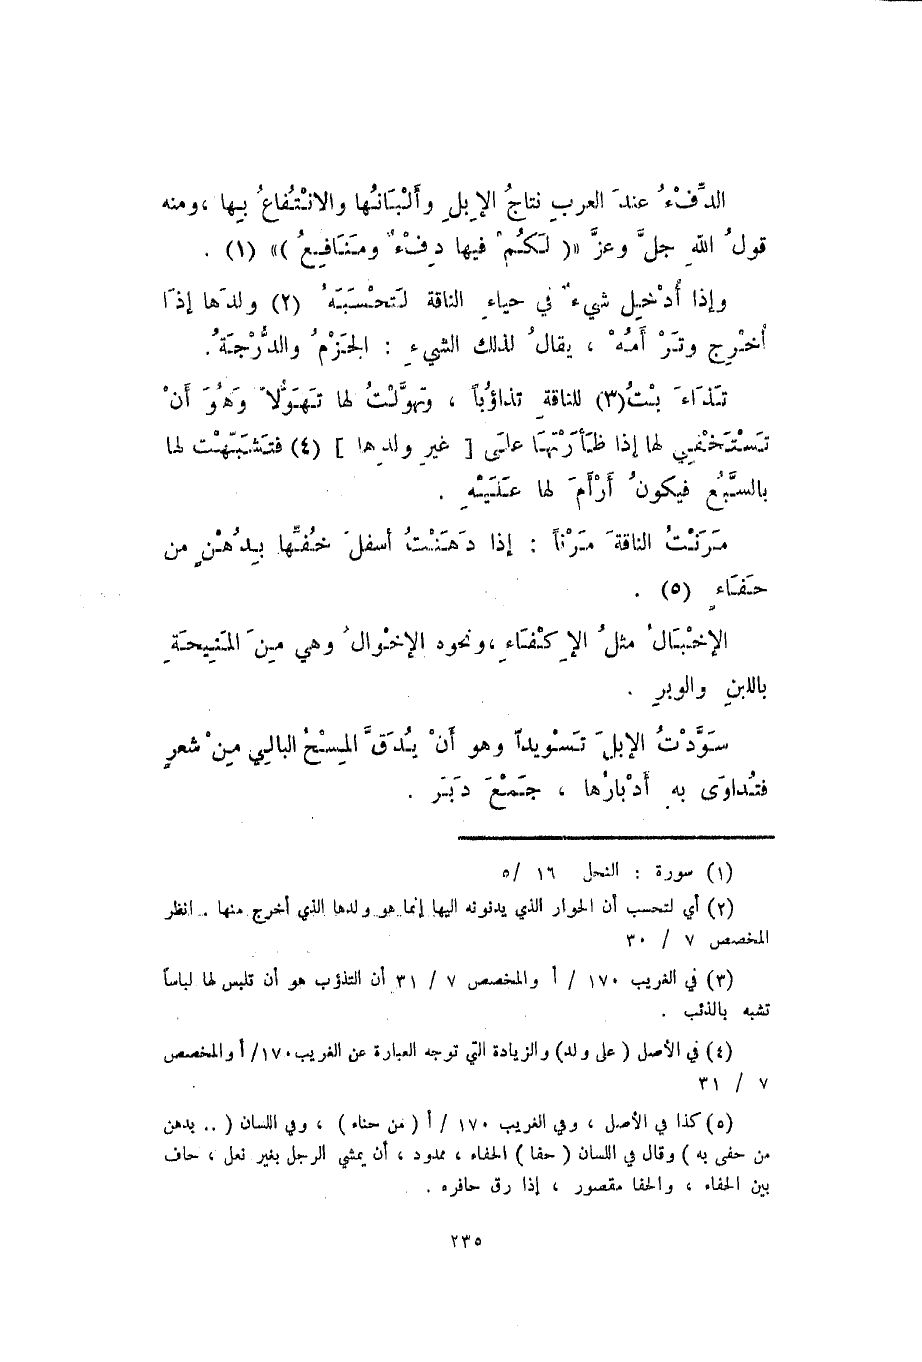 الدِّفْءُ عندَ العربِ نتاجُ الإِبلِ وأَلْبَانُها والانْتُفاعُ بِها ،ومنه
قولُ اللهِ جلَّ وعزَّ «( لَكُمْ فيها دِفْءٌ ومَنَافِعُ )» (١) .
وإذا أُدْخِل شيءٌ في حياءِ الناقة لَتَحْسَبَهُ (٢) ولدَها إذَا
أُخْرِج وتَرْأمُهْ ، يقالُ لذلك الشيءِ : الجَزْمُ والدُّرْجَةُ.
تَذَاءَبْتُ(٣) للناقةِ تذاؤُباً ، وتهوَّلْتُ لها تَهَوُّلاً وَهُوَ أَنْ
تَسْتَخْفِي لها إذا ظَأَرْتَهَا على [ غيرِ ولدِها ] (٤) فتَشَبَّهْت لها
بالسَّبُع فيكونُ أَرْأمَ لها عَلَيْهِ .
مَرَنْتُ الناقةَ مَرْناً : إذا دَهَنْتُ أسفلَ خُفِّها بِدُهْنٍ من
حَفَاءٍ (٥) .
الإخْبَالُ مثلُ الإِكْفَاءِ ،ونحوه الإخْوالُ وهي مِنَ المَنِيحَةِ
باللبنِ والوبرِ .
سَوَّدْتُ الإبلَ تَسْويداً وهو أَنْ يُدَقَّ المِسْحُ البالِي مِنْ شعرٍ
فتُداوَى بهِ أدْبارُها ، جَمْعَ دَبَر .
(١) سورة : النحل ١٦ /٥
(٢) أي لتحسب أن الحوار الذي يدنونه اليها إنما هو ولدها الذي أخرج منها .. انظر
المخصص ٧ / ٣٠
(٣) في الغريب ١٧٠ / أ والمخصص ٧ / ٣١ أن التذؤب هو أن تلبس لها لباساً
تشبه بالذئب .
(٤) في الأصل ( على ولد) والزيادة التي توجه العبارة عن الغريب١٧٠/ أ والمخصص
٧ / ٣١
(٥) كذا في الأصل ، وفي الغريب ١٧٠ / أ ( من حناء ) ، وفي اللسان ( .. بدهن
من حفى به ) وقال في اللسان ( حفا ) الحفاء ، ممدود ، أن يمشي الرجل بغير نعل ، حاف
بين الحفاء ، والحفا مقصور ، إذا رق حافره .
٢٣٥